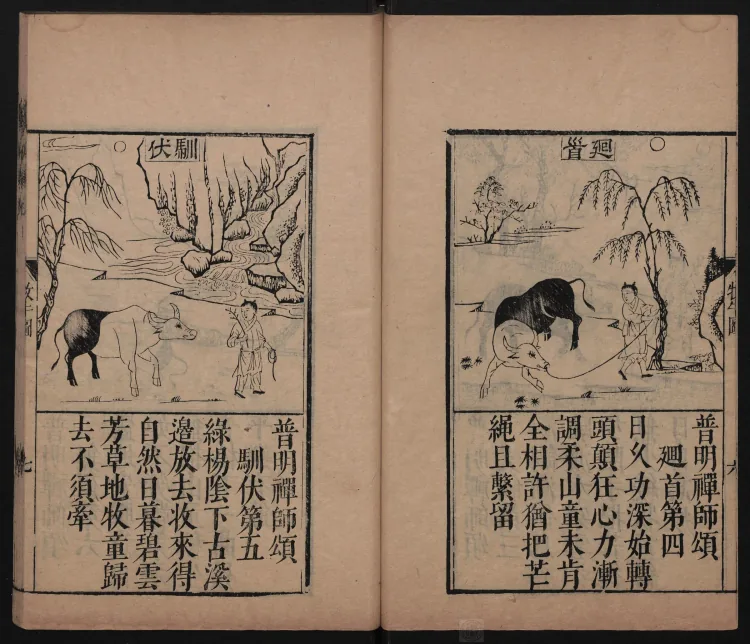 廻首
普明禪師頌
廻首第四
日久功深始轉
頭顛狂心力漸
調柔山童未肯
全相許猶把芒
繩且繫留
馴伏
普明禪師頌
馴伏第五
綠楊陰下古溪
邊放去收來得
自然日暮碧雲
芳草地牧童歸
去不須牽
七